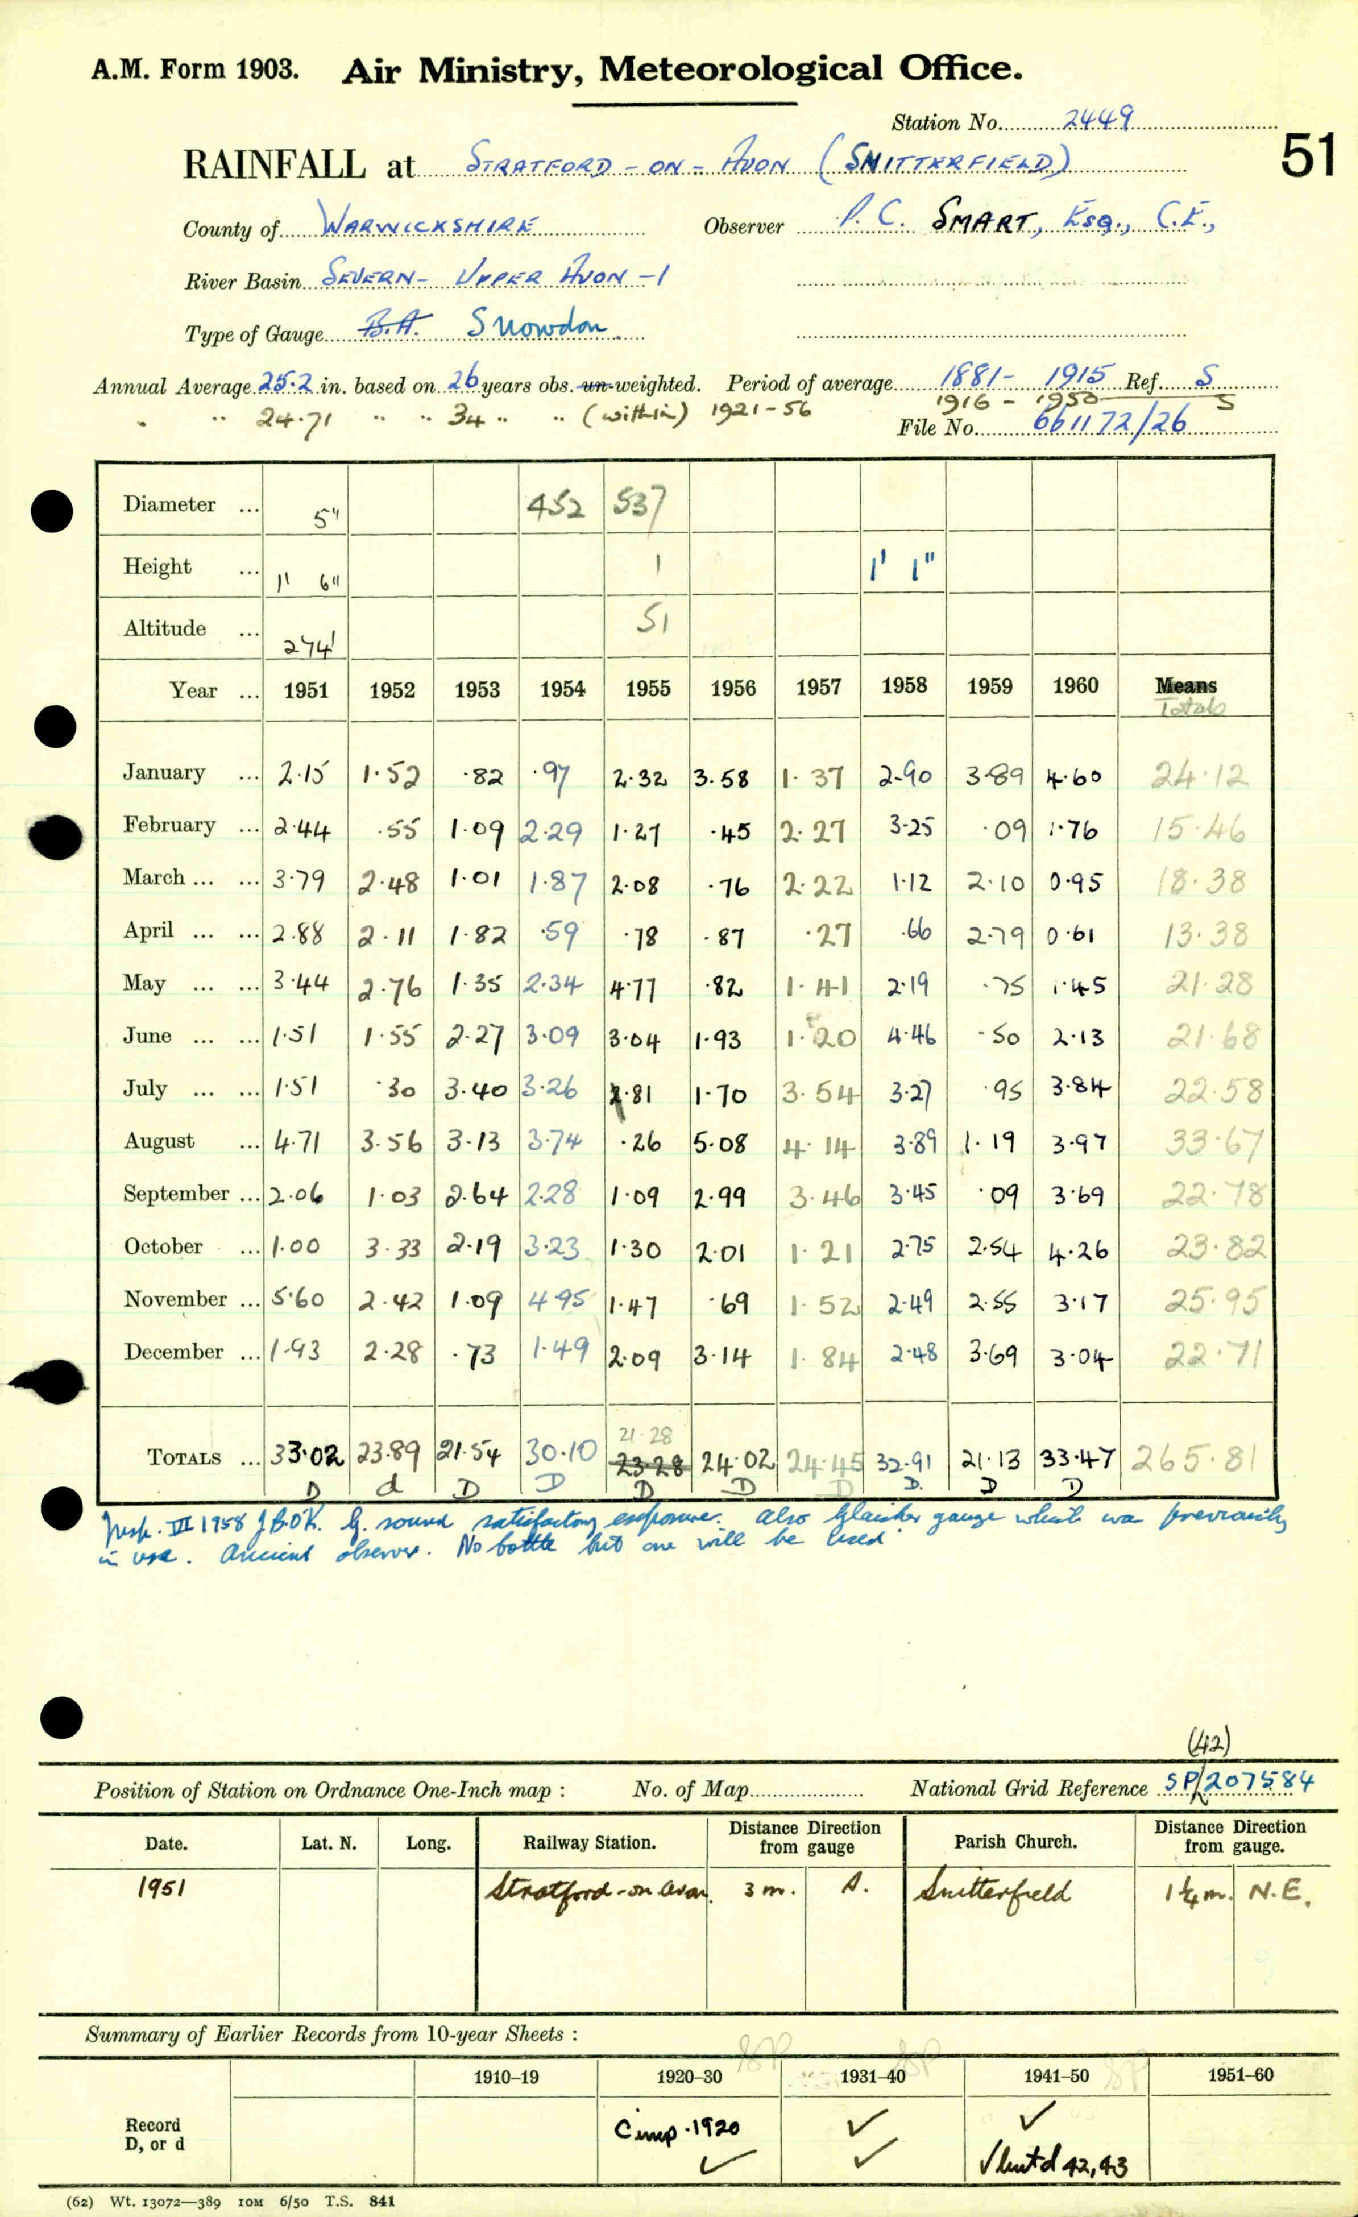 A.M. Form 1903. Air Ministry, Meteorological Office.
Station No. 2449
51
RAINFALL at STRATFORD - ON - AVON (SNITTERFIELD)
County of WARWICKSHIRE Observer P. C. SMART, Esq., C.E.,
River Basin SEVERN - UPPER AVON - 1
Type of Gauge B.A. Snowdon
Annual Average 25.2 in. based on 26 years obs. un-weighted. Period of average 1881 - 1915 Ref. S
" " 24.71 " " 34 " " (within) 1921-56 1916 - 1950 S
File No. 661172/26
Diameter ... 5" 452 537
Height ... 1' 6" 1 1' 1"
Altitude ... 274' 51
Year ... 1951 1952 1953 1954 1955 1956 1957 1958 1959 1960 Means
Totals
January ... 2.15 1.52 .82 .97 2.32 3.58 1.37 2.90 3.89 4.60 24.12
February ... 2.44 .55 1.09 2.29 1.27 .45 2.27 3.25 .09 1.76 15.46
March ... ... 3.79 2.48 1.01 1.87 2.08 .76 2.22 1.12 2.10 0.95 18.38
April ... ... 2.88 2.11 1.82 .59 .78 .87 .27 .66 2.79 0.61 13.38
May ... ... 3.44 2.76 1.35 2.34 4.77 .82 1.41 2.19 .75 1.45 21.28
June ... ... 1.51 1.55 2.27 3.09 3.04 1.93 1.20 4.46 .50 2.13 21.68
July ... ... 1.51 .30 3.40 3.26 .81 1.70 3.54 3.27 .95 3.84 22.58
August ... 4.71 3.56 3.13 3.74 .26 5.08 4.14 3.89 1.19 3.97 33.67
September ... 2.06 1.03 2.64 2.28 1.09 2.99 3.46 3.45 .09 3.69 22.78
October ... 1.00 3.33 2.19 3.23 1.30 2.01 1.21 2.75 2.54 4.26 23.82
November ... 5.60 2.42 1.09 4.95 1.47 .69 1.52 2.49 2.55 3.17 25.95
December ... 1.93 2.28 .73 1.49 2.09 3.14 1.84 2.48 3.69 3.04 22.71
21.28
TOTALS ... 33.02 23.89 21.54 30.10 23.28 24.02 24.45 32.91 21.13 33.47 265.81
D d D D D D D D. D D
Insp. VII 1958 J.B.O.K. G. sound satisfactory exposure. Also Glaisher gauge which was previously
in use. Ancient observer. No bottle but one will be used
(42)
Position of Station on Ordnance One-Inch map : No. of Map National Grid Reference SP/207584
Date. Lat. N. Long. Railway Station. Distance Direction from gauge Parish Church. Distance Direction from gauge.
1951 Stratford-on Avon. 3 m. S. Snitterfield 1¼ m. N.E.
Summary of Earlier Records from 10-year Sheets :
SP SP SP
1910–19 1920–30 1931–40 1941–50 1951–60
Record
D, or d
Comp. 1920 ✓ ✓
✓ ✓ ✓ but d 42, 43
(62) Wt. 13072—389 10M 6/50 T.S. 841